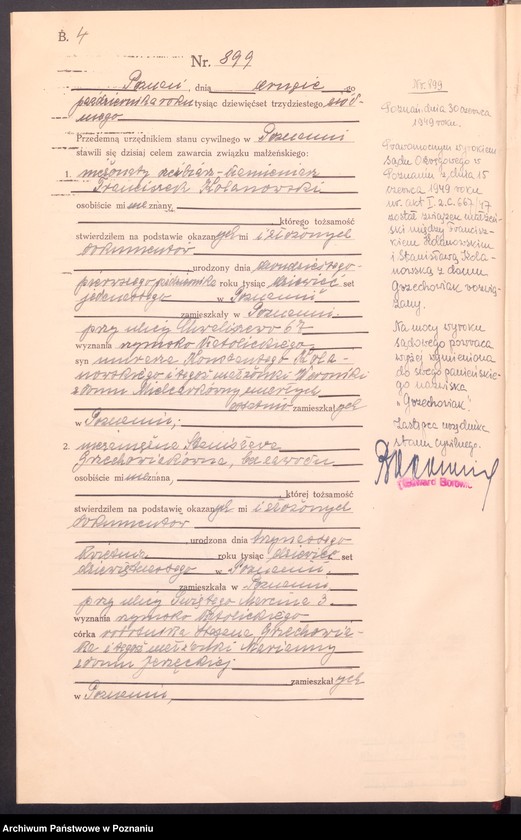 B. 4
Nr. 899
Poznań, dnia drugiego
października roku tysiąc dziewięćset trzydziestego siód-
mego
Przedemną urzędnikiem stanu cywilnego w Poznaniu
stawili się dzisiaj celem zawarcia związku małżeńskiego:
1. nieżonaty rzeźbiarz-kamieniarz
Franciszek Kolanowski
osobiście mi nieznany,
którego tożsamość
stwierdziłem na podstawie okazanych mi i złożonych
dokumentów
urodzony dnia dwudziestego
pierwszego października roku tysiąc dziewięć set
jedenastego w Poznaniu
zamieszkały w Poznaniu
przy ulicy Chwaliszewo 67
wyznania rzymsko katolickiego
syn murarza Konstantego Kola-
nowskiego i tegoż małżonki Weroniki
z domu zmarłych
ostatnio zamieszkałych
w Poznaniu;
2. niezamężna Stanisława
Grzechowiakówna, bez zawodu
osobiście mi nieznana,
której tożsamość
stwierdziłem na podstawie okazanych mi i złożonych
dokumentów
urodzona dnia trzynastego
kwietnia roku tysiąc dziewięć set
w Poznaniu
zamieszkała w Poznaniu
przy ulicy Święty Marcin 3
wyznania rzymsko katolickiego
córka Grzechowia-
ka i tegoż małżonki Marianny
z domu Jerzyckiej
zamieszkałych
w Poznaniu,
Nr. 899
Poznań, dnia 30 czerwca
1949 roku.
Prawomocnym wyrokiem
Sądu Okręgowego w
Poznaniu z dnia 15
czerwca 1949 roku
nr. akt I. 2. C. 667/47
został związek małżeń-
ski między Francisz-
kiem Kolanowskim
i Stanisławą Kola-
nowską z domu
Grzechowiak rozwią-
zany.
Na mocy wyroku
sądowego powraca
wyżej wymieniona
do swego panieńskie-
go nazwiska
„Grzechowiak".
Zastępca urzędnika
stanu cywilnego.
Archiwum Państwowe w Poznaniu